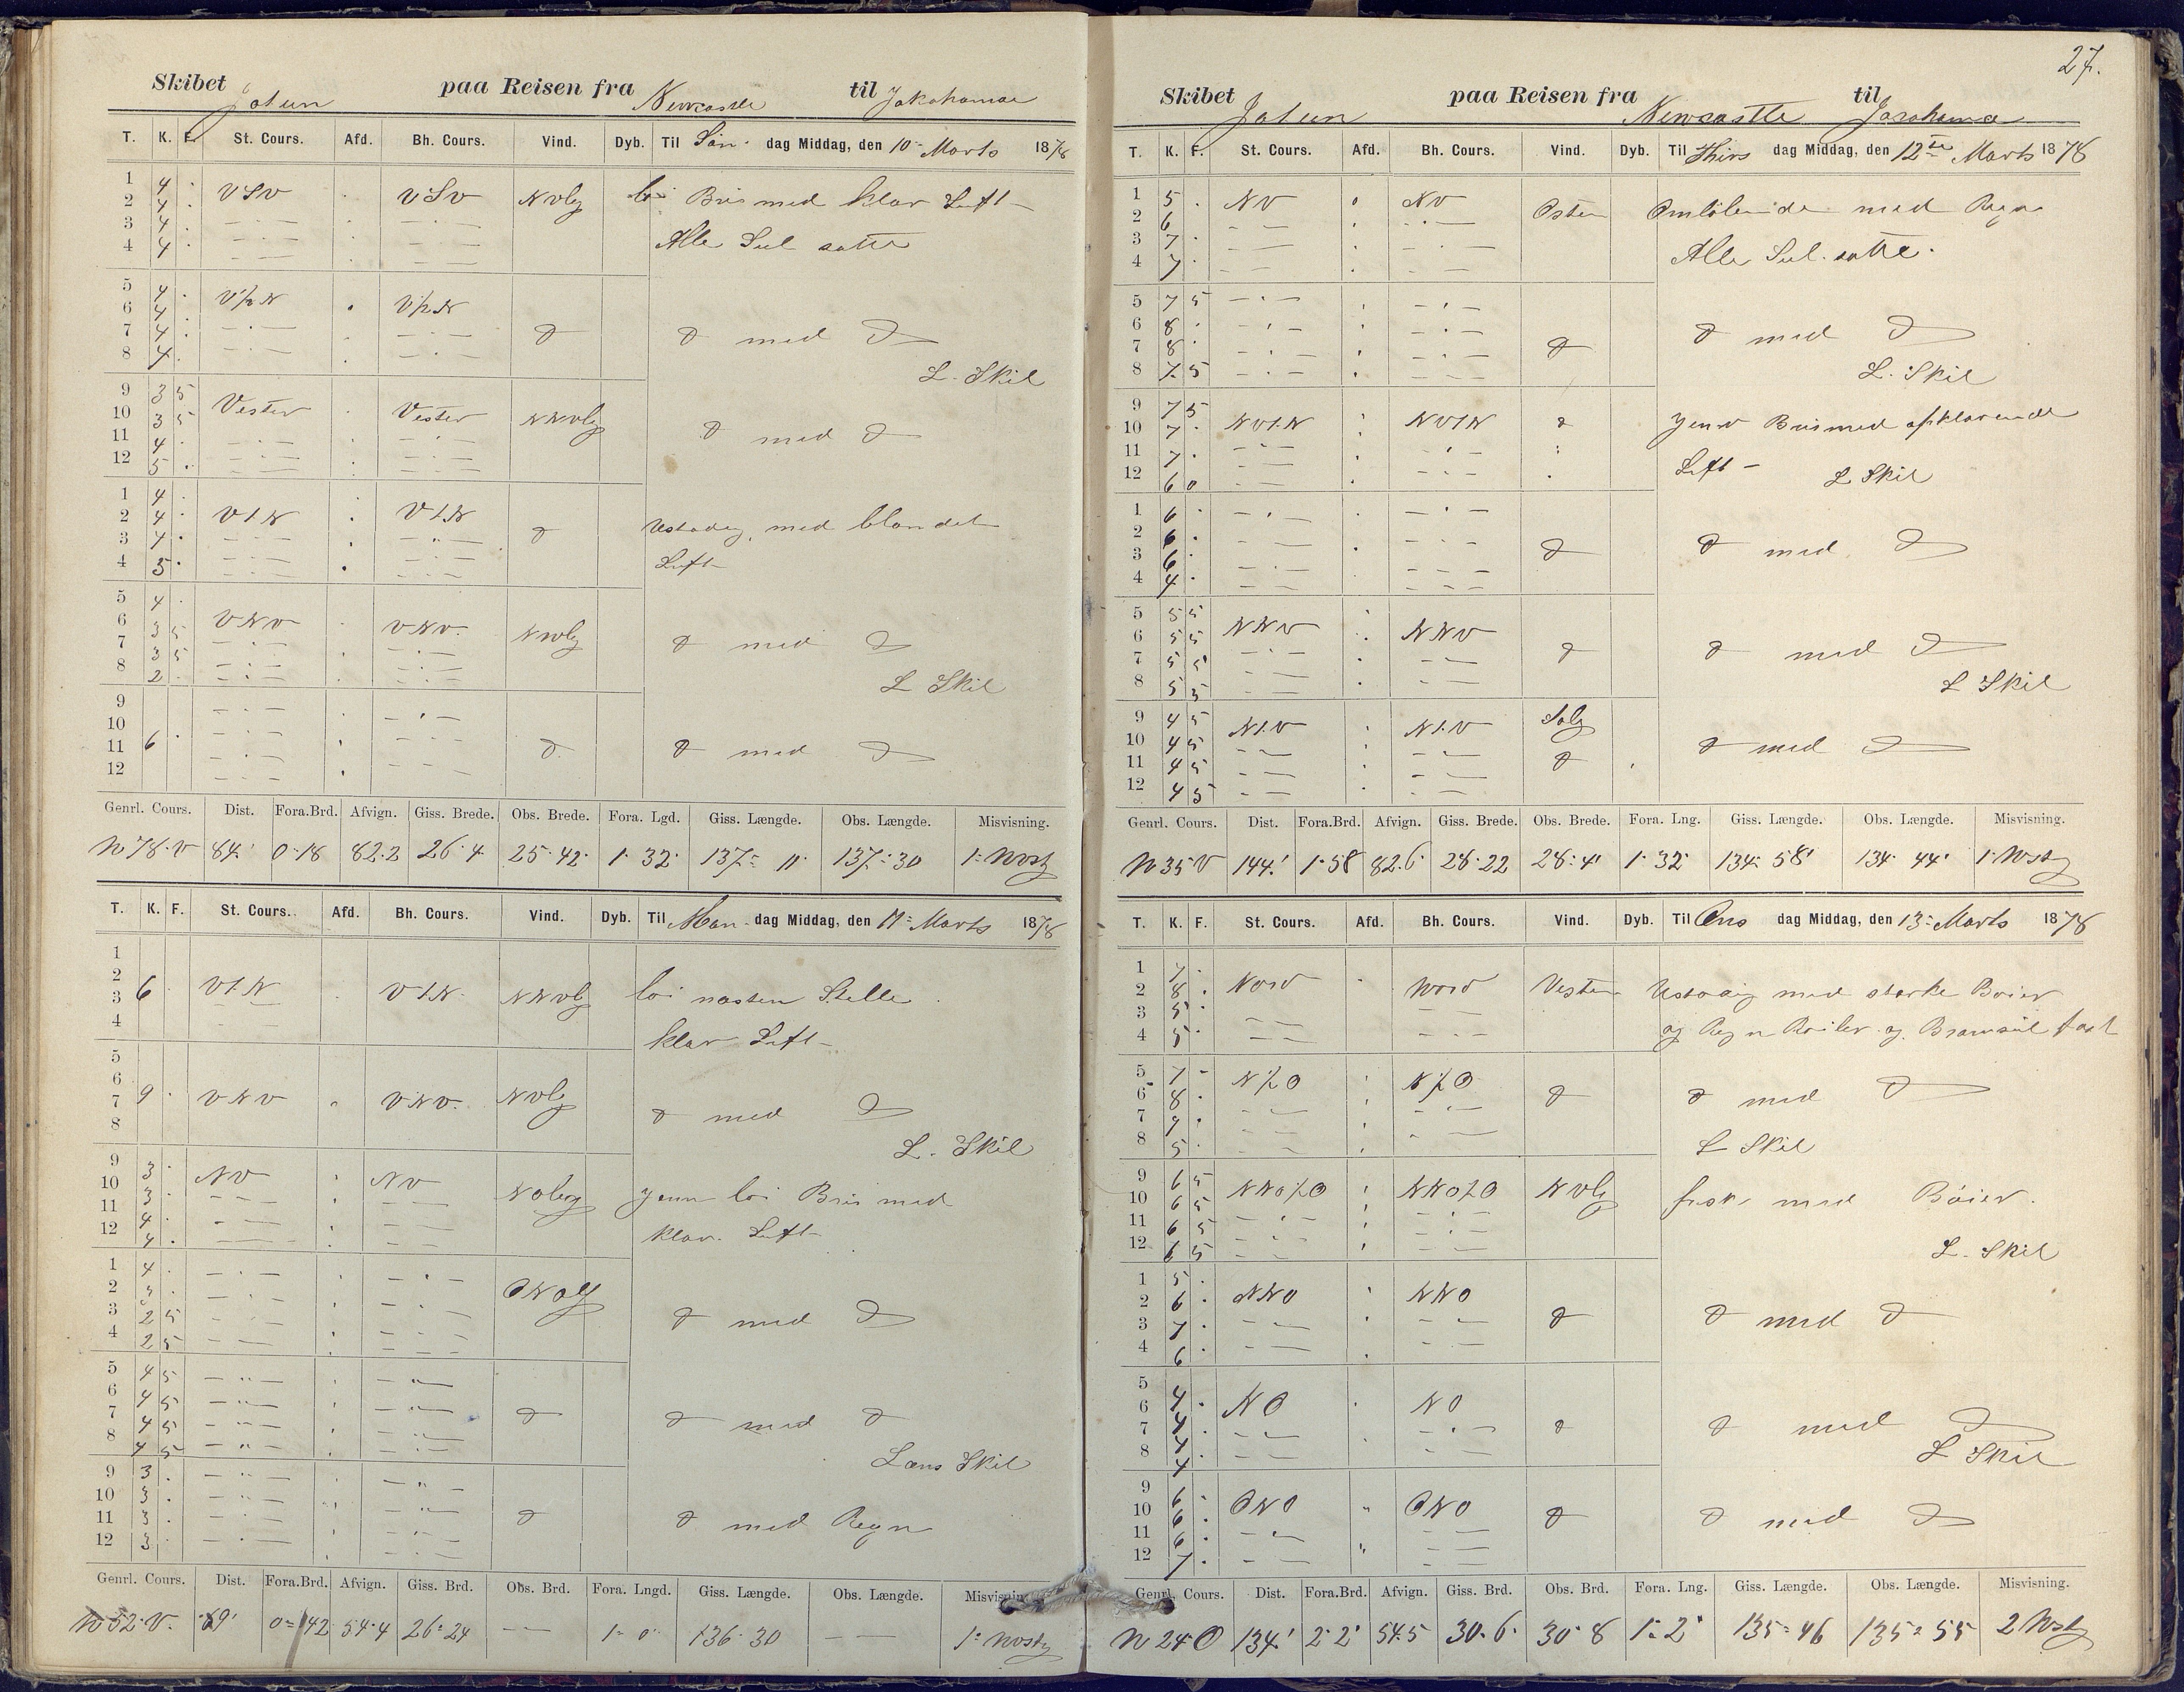 Skibet Jotun paa Reisen fra Newcastle til Jokohama
T. K. F. St. Cours. Afd. Bh. Cours. Vind. Dyb. Til Søn dag Middag, den 10 Marts 1878
1 4 VSV VSV NVlig løi Bris med klar Luft
2 4
3 4
4 4 Alle Seil satte
5 4 V½N V½N
6 4
7 4 d d med d
8 4 L. Skil
9 3 5 Vester Vester NNVlig
10 3 5
11 4 d med d
12 5
1 4
2 4 V t N V t N Ustadig med blandet
3 4 d
4 5 Luft
5 4
6 3 5 VNV VNV NVlig
7 3 5 d med d
8 2 L Skil
9
10
11 6 d d med d
12
Genrl. Cours. Dist. Fora.Brd. Afvign. Giss. Brede. Obs. Brede. Fora. Lgd. Giss. Længde. Obs. Længde. Misvisning.
N 78 V 84 0 18 82.2 26 4 25 42 1 32 137 11 137 30 1 Nostg
T. K. F. St. Cours. Afd. Bh. Cours. Vind. Dyb. Til Man dag Middag, den 11 Marts 1878
1
2
3 6 V t N V t N NNVlig løi næsten Stille
4 klar Luft
5
6
7 9 VNV VNV NVlig d med d
8 L. Skil
9 3 NV NV
10 3 jevn løi Bris med
11 4
12 4 klar Luft
1 4
2 3 ONOlig
3 2 5 d med d
4 2 5
5 4 5
6 4 5
7 4 5 d d med d
8 4 5 Lans Skil
9 3
10 3
11 3 d d med Regn
12 3
Genrl. Cours. Dist. Fora.Brd. Afvign. Giss. Brd. Obs. Brd. Fora. Lngd. Giss. Længde. Obs. Længde. Misvisning
N 52 V. 69 0 42 54.4 26 24 — 1 0 136 30 — 1 Nostg
27.
Skibet Jotun paa Reisen fra Newcastle til Jokohama
T. K. F. St. Cours. Afd. Bh. Cours. Vind. Dyb. Til Thirs dag Middag, den 12te Marts 1878
1 5 NV NV
2 6 Osten Omløbende med Regn
3 7
4 7 Alle Seil satte
5 7 5
6 8
7 8 d d med d
8 7 5 L. Skil
9 7 5
10 7 NV t N NV t N d jevn Bris med opklarende
11 7
12 6 0 Luft L Skil
1 6
2 6
3 6 d d med d
4 4
5 5 5
6 5 5 NNV NNV
7 5 5 d d med d
8 5 5 L Skil
9 4 5 N t V N t V
10 4 5
11 4 5 d d med d
12 4 5
Genrl. Cours. Dist. Fora.Brd. Afvign. Giss. Brede. Obs. Brede. Fora. Lng. Giss. Længde. Obs. Længde. Misvisning.
N 35 V 144 1 58 82.6 28 22 28 4 1 32 134 58 134 44 1 Nostg
T. K. F. St. Cours. Afd. Bh. Cours. Vind. Dyb. Til Ons dag Middag, den 13 Marts 1878
1 7
2 8 Nord Nord Vesten Ustadig med stærke Bøier
3 5
4 5 og Regn Røiler og Bramseil fast
5 7 N½O N½O
6 8 d d med d
7 7
8 5 L Skil
9 6 5
10 6 5 NNO½O NNO½O NVlig frisk med Bøier
11 6 5
12 6 5 L. Skil
1 5
2 6 NNO NNO
3 7 d d med d
4 6
5 4
6 4 NO NO
7 4 d d med d
8 4 L Skil
9 6
10 6 ONO ONO d d med d
11 6
12 7
Genrl. Cours. Dist. Fora.Brd. Afvign. Giss. Brd. Obs. Brd. Fora. Lng. Giss. Længde. Obs. Længde. Misvisning.
N 24 O 134 2 2 54.5 30 6 30 8 1 2 135 46 135 55 2 Vstg